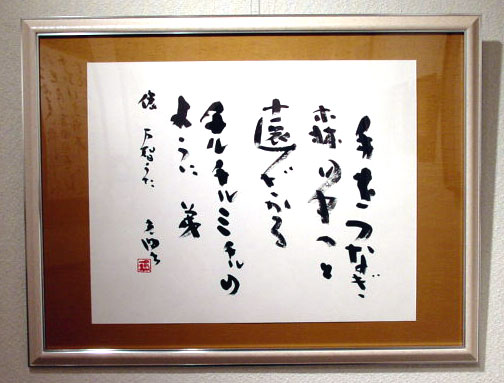 手をつなぎ
森の中へと
遠ざかる
チルチルミチルの
ような
俵 万智うた